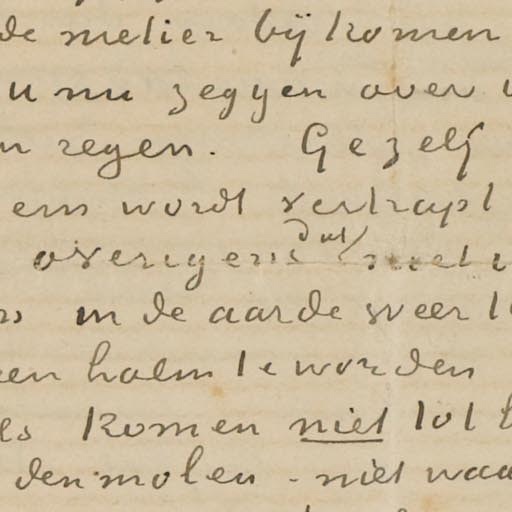 de metier bij komen
u nu zeggen over
n regen. Gezelf
ens wordt vertrapt
overigens dat niet
in de aarde weer
een halm te worden
ls komen niet tot
den molen - niet waa